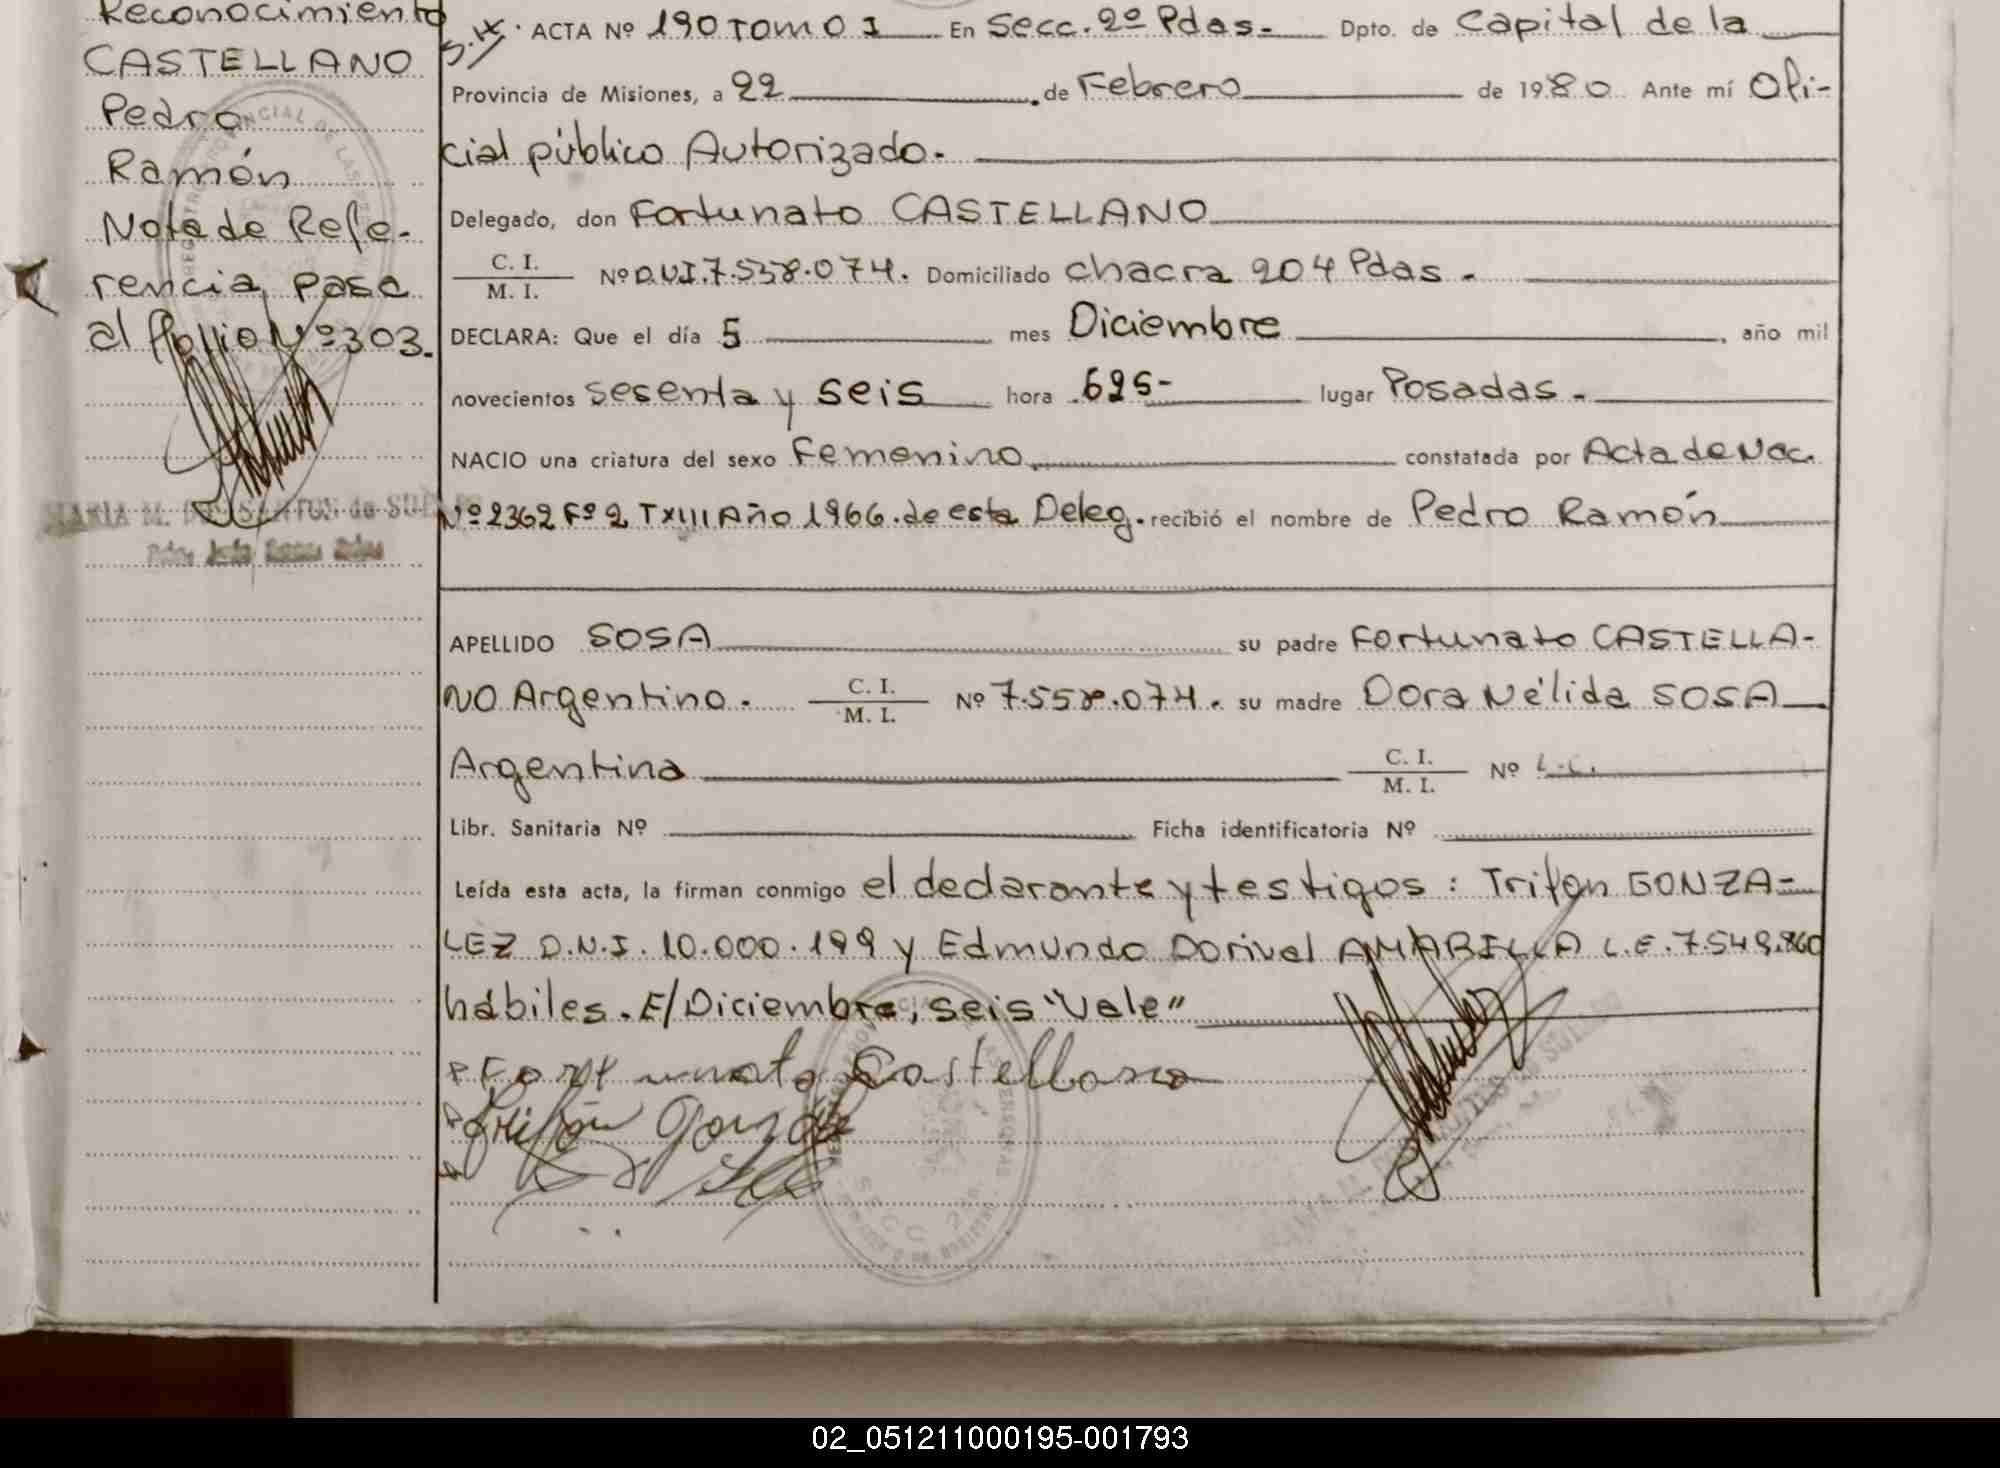 Reconocimiento
CASTELLANO
Pedro
Ramón
Nota de Refe-
rencia, pasa
al folio Nº 303.
ACTA Nº 190 TOMO I En Secc. 2º Pdas.- Dpto. de Capital de la
Provincia de Misiones, a 22 de Febrero de 1980 Ante mí Ofi-
cial público Autorizado.
Delegado, don Fortunato CASTELLANO
C. I.
M. I. Nº D.N.I. 7.558.074. Domiciliado chacra 204 Pdas.
DECLARA: Que el día 5 mes Diciembre, año mil
novecientos sesenta y seis hora 625- lugar Posadas.
NACIO una criatura del sexo Femenino constatada por Acta de Nac.
Nº 2362 Fº 2 TXIII Año 1966. de esta Deleg. recibió el nombre de Pedro Ramón
APELLIDO SOSA su padre Fortunato CASTELLA-
NO Argentino. C. I.
M. I. Nº 7.558.074. su madre Dora Nélida SOSA
Argentina C. I.
M. I. Nº L.C.
Libr. Sanitaria Nº Ficha identificatoria Nº
Leída esta acta, la firman conmigo el declarante y testigos: Trifon GONZA-
LEZ D.N.I. 10.000.199 y Edmundo Dorivel AMARILLA L.E. 7.549.860
hábiles. E/Diciembre, seis "Vale"
Fortunato Castellano
Trifón Gonzalez
02_051211000195-001793